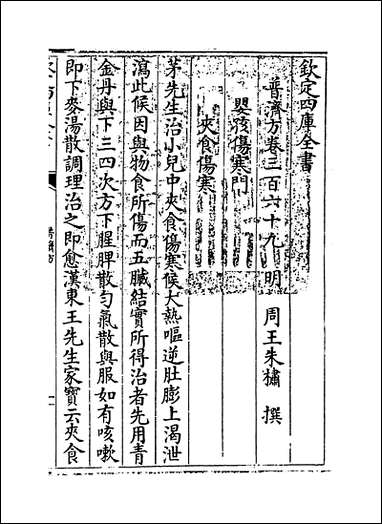 欽定四庫全書
普濟方卷三百六十九 明 周王朱橚 撰
嬰孩傷寒門
夾食傷寒
茅先生治小兒中夾食傷寒候大熱嘔逆肚膨上渴泄
瀉此候因與物食所傷而五臟結實所得治者先用青
金丹與下三四次方下腥脾散匀氣散與服如有咳嗽
即下麥湯散調理治之即愈漢東王先生家寶云夾食
普濟方
一